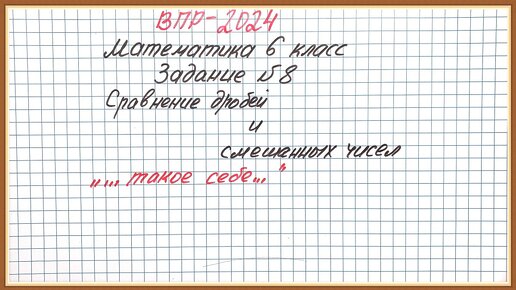 ВПР-2024
Математика 6 класс
Задание №8
Сравнение дробей
и
смешанных чисел
„... такое себе..."